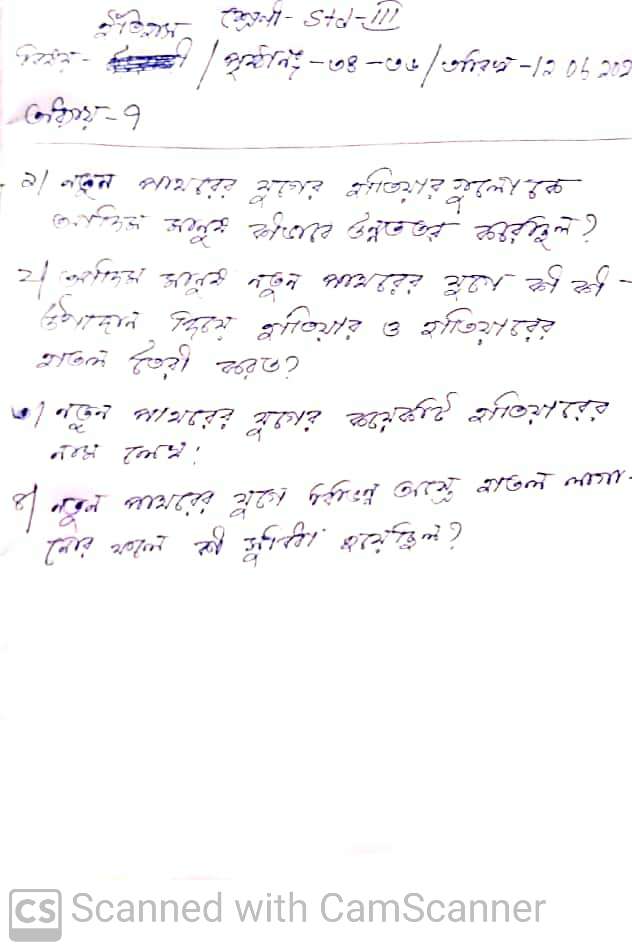 ইতিহাস শ্রেণী - Std - III
বিষয় - / পৃষ্ঠানং - ৩৪ - ৩৬ / তারিখ - 12 06 202
অধ্যায় - ৭
১/ নতুন পাথরের যুগের হাতিয়ার গুলোকে
আদিম মানুষ কীভাবে উন্নততর করেছিল?
২/ আদিম মানুষ নতুন পাথরের যুগে কী কী -
উপাদান দিয়ে হাতিয়ার ও হাতিয়ারের
হাতল তৈরী করত?
৩/ নতুন পাথরের যুগের কয়েকটি হাতিয়ারের
নাম লেখ।
৪/ নতুন পাথরের যুগে বিভিন্ন অস্ত্রে হাতল লাগা-
নোর ফলে কী সুবিধা হয়েছিল?
CS Scanned with CamScanner